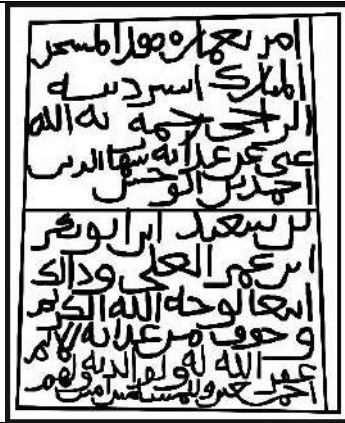 امر بعماره هدا المسجد
المبارك اسير دنبه
الراجي رحمه ربه الله
عن عدابه شهاب الدين
احمد بن ابو حسن
بن سعيد ابن ابو بكر
ابن عمر العلي ودلك
ابتغا لوجه الله الكريم
وخوف من عدابه الاليم
غفر الله له ولوالديه ولهم
اجمعين وللمسلمين امين